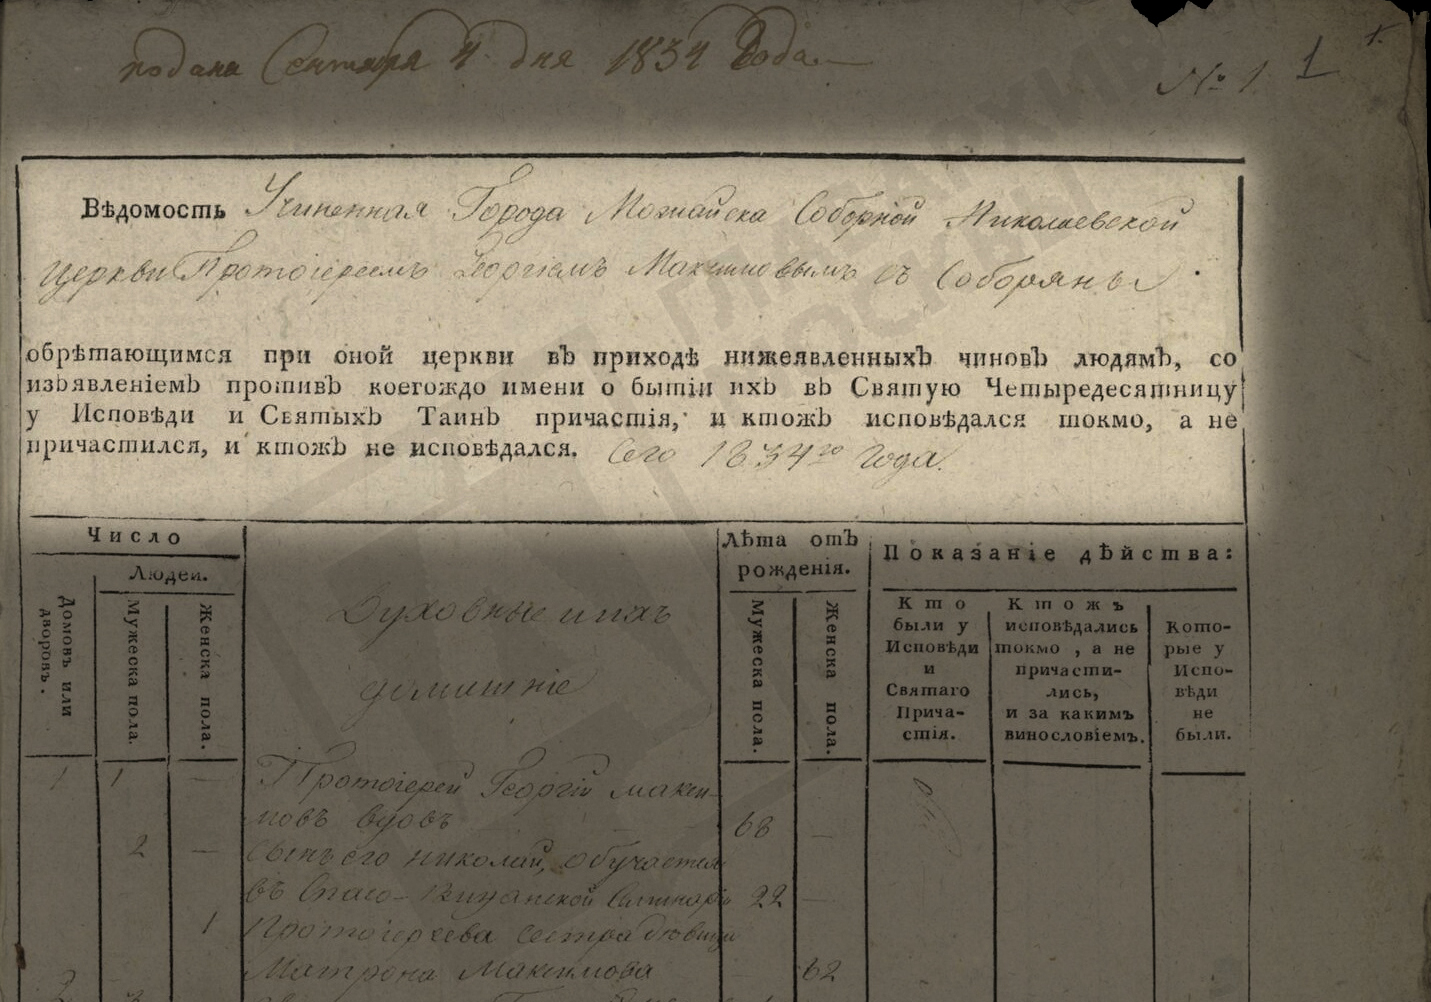 подана Сентября 4 дня 1834 Года.
№ 1. 1 1.
Вѣдомость Учиненная Города Можайска Соборной Николаевской
Церкви Протоіереемъ Георгіемъ Максимовымъ съ Соборяны
обрѣтающимся при оной церкви въ приходѣ нижеявленныхъ чиновъ людямъ, со
изъявленіемъ противъ коегождо имени о бытіи ихъ въ Святую Четыредесятницу
у Исповѣди и Святыхъ Таинъ причастія, и ктожъ исповѣдался токмо, а не
причастился, и ктожъ не исповѣдался. Сего 1834го Года.
Число
Людей.
Домовъ или дворовъ.
Мужеска пола.
Женска пола.
Духовные и ихъ
домашніе
Лѣта отъ
рожденія.
Мужеска пола.
Женска пола.
Показаніе дѣйства:
Кто
были у
Исповѣди
и
Святаго
Прича-
стія.
Ктожъ
исповѣдались
токмо, а не
причасти-
лись,
и за какимъ
винословіемъ.
Кото-
рые у
Испо-
вѣди
не
были.
1 1 — Протоіерей Георгій Макси-
мовъ вдовъ 68 —
2 — Сынъ его Николай, обучается
въ Спасо-Виѳанской Семинаріи 22 —
1 Протоіереева сестра девица
Матрона Максимова 62
2 3